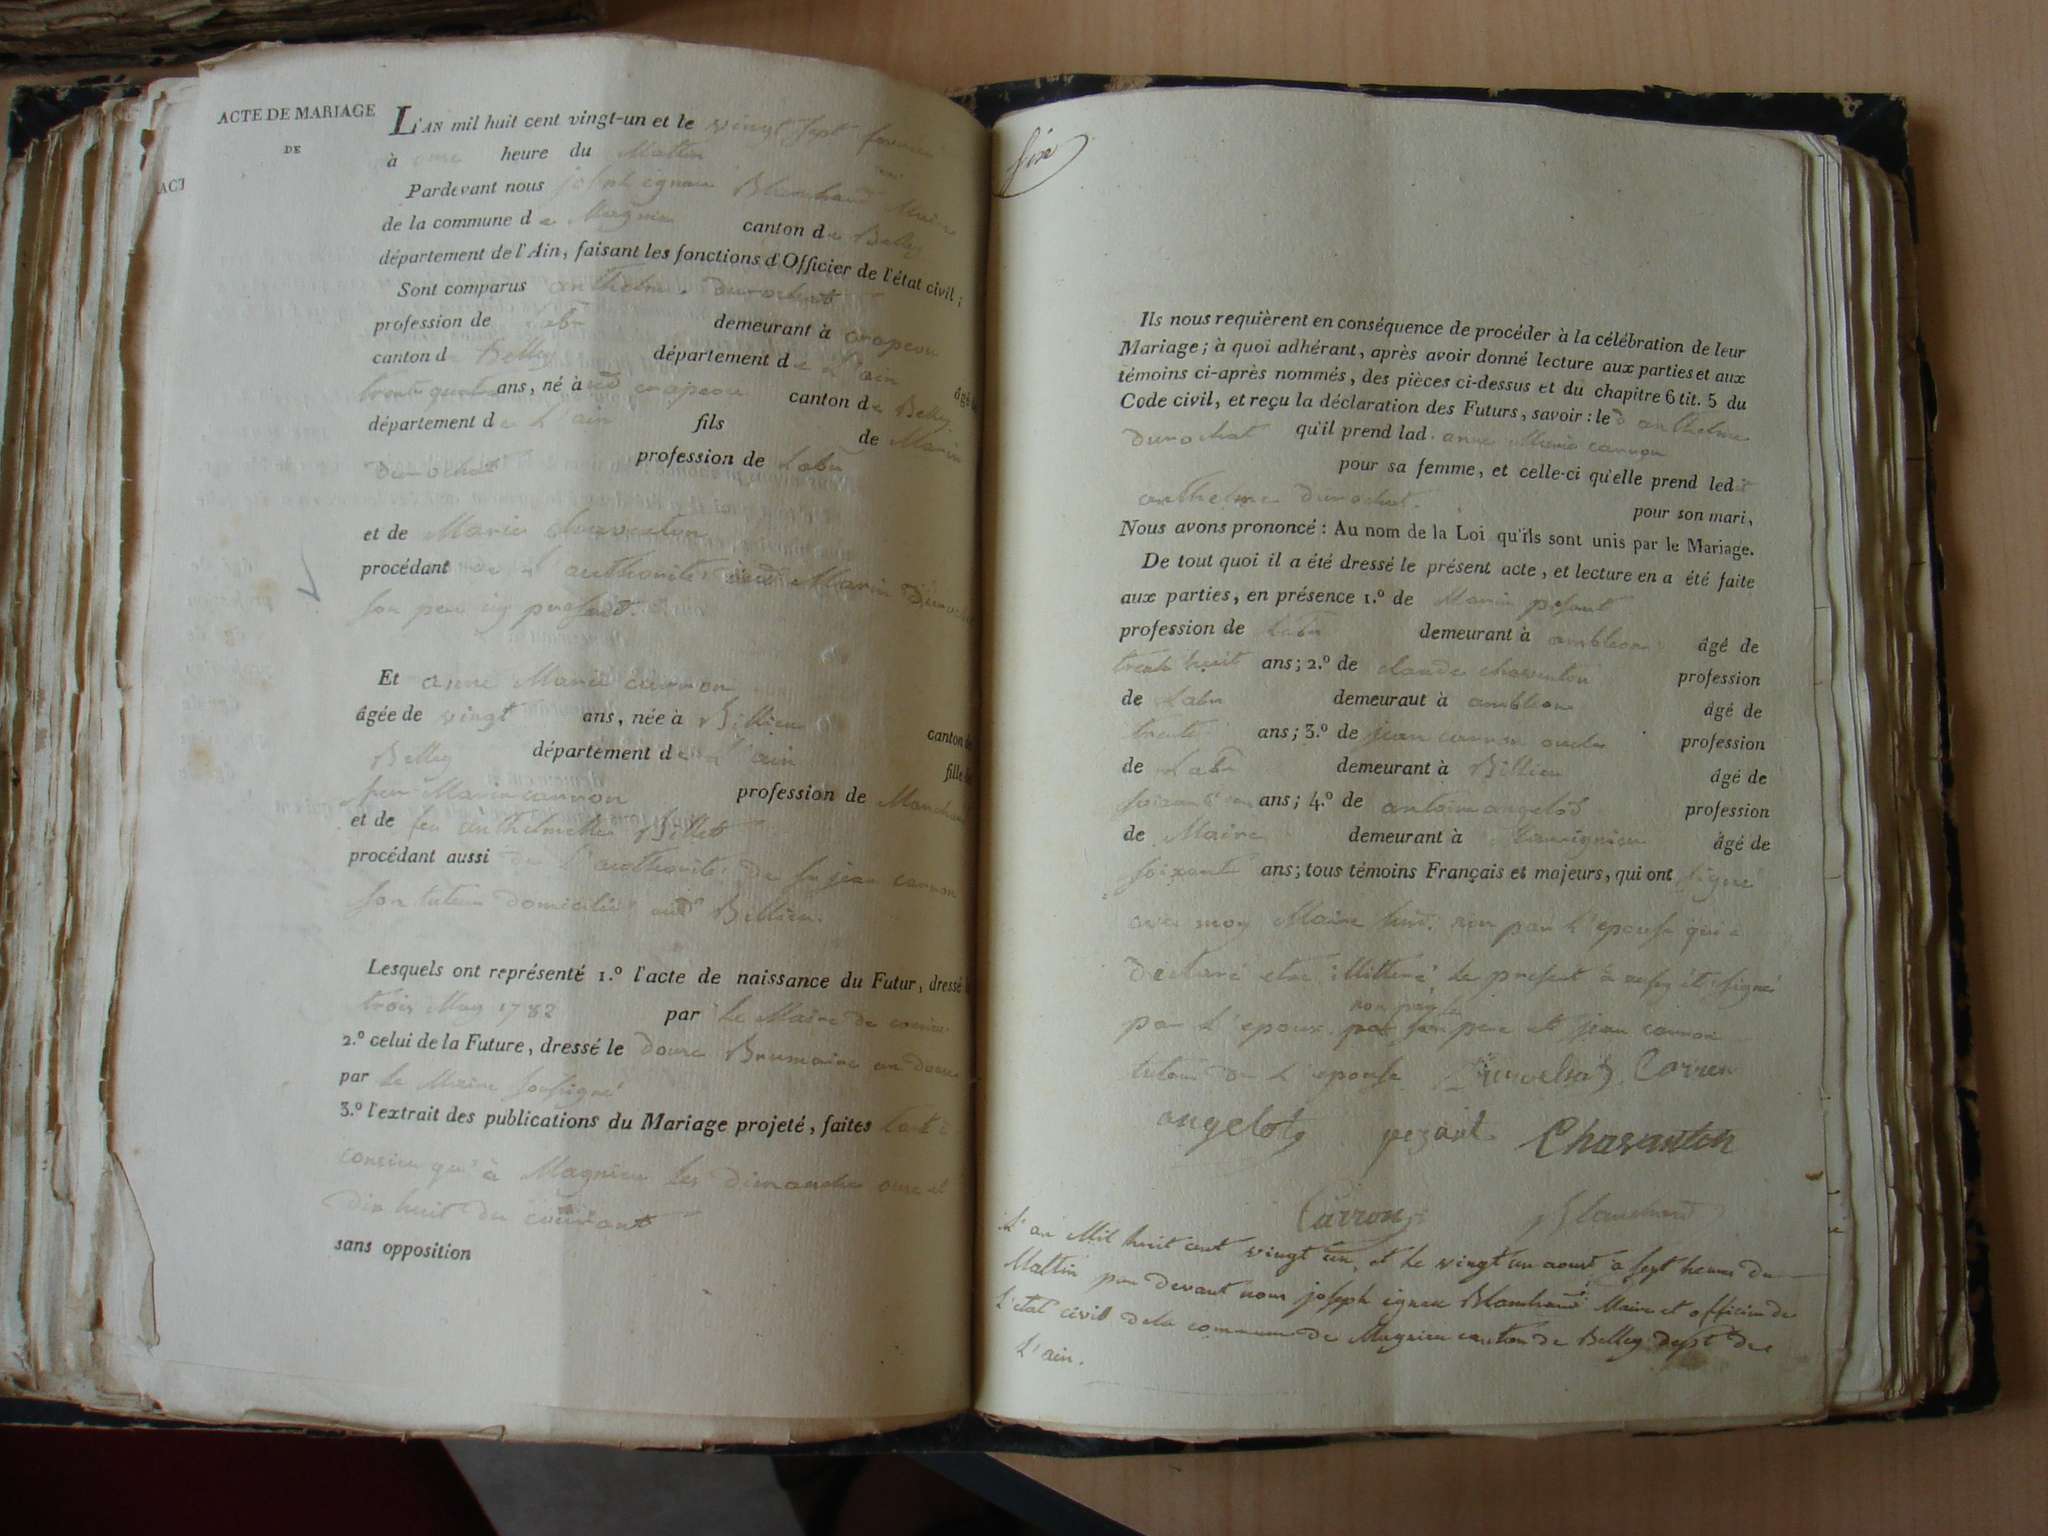 ACTE DE MARIAGE
DE
ACT
L'AN mil huit cent vingt-un et le vingt sept fevrier
à onze heure du Mattin
Pardevant nous joseph ignace Blanchard Maire
de la commune de Magnieu canton de Belley
département de l'Ain, faisant les fonctions d'Officier de l'état civil;
Sont comparus anthelme Durochat
profession de Labr demeurant à
canton de Belley département de L'ain âgé
trente quatre ans, né à canton de Belley
département de L'ain fils de Marin
Durochat profession de Labr
et de Marie
procédant de l'authorité dud Marin Durochat
son pere icy present.
Et anne Marie carron
âgée de vingt ans, née à Billieu canton de
Belley département de L'ain fille de
feu Marin carron profession de Marchand
et de feu anthelmette Billet
procédant aussi de l'authorité de jean carron
son tuteur domicilié aud Billieu.
Lesquels ont représenté 1.º l'acte de naissance du Futur, dressé le
trois May 1788 par le Maire de
2.º celui de la Future, dressé le douze Brumaire an douze
par le Maire soussigné
3.º l'extrait des publications du Mariage projeté, faites tant à
qu'à Magnieu les dimanche onze et
dix huit du courant
sans opposition
Ils nous requièrent en conséquence de procéder à la célébration de leur
Mariage; à quoi adhérant, après avoir donné lecture aux parties et aux
témoins ci-après nommés, des pièces ci-dessus et du chapitre 6 tit. 5 du
Code civil, et reçu la déclaration des Futurs, savoir: led anthelme
durochat qu'il prend lad. anne Marie carron
pour sa femme, et celle-ci qu'elle prend ledit
anthelme durochat. pour son mari,
Nous avons prononcé: Au nom de la Loi qu'ils sont unis par le Mariage.
De tout quoi il a été dressé le présent acte, et lecture en a été faite
aux parties, en présence 1.º de Marin pesant
profession de Labr demeurant à ambleon âgé de
trente huit ans; 2.º de claude chaventon profession
de Labr demeuraut à ambleon âgé de
trente ans; 3.º de jean carron oncle profession
de Labr demeurant à Billieu âgé de
ans; 4.º de antoine angelot profession
de Maire demeurant à âgé de
soixante ans; tous témoins Français et majeurs, qui ont signé
avec moy Maire non par l'epouse qui a
declaré etre illitteré, le present a été signé
non par le
par l'epoux par son pere et jean carron
tuteur de l'epouse Durochat Carron
angelot pezant Chavanton
Carron Blanchard
L'an Mil huit cent vingt un, et le vingt un aoust à sept heures du
Mattin par devant nous joseph ignace Blanchard Maire et officier de
L'etat civil de la commune de Magnieu canton de Belley dept de
L'ain.